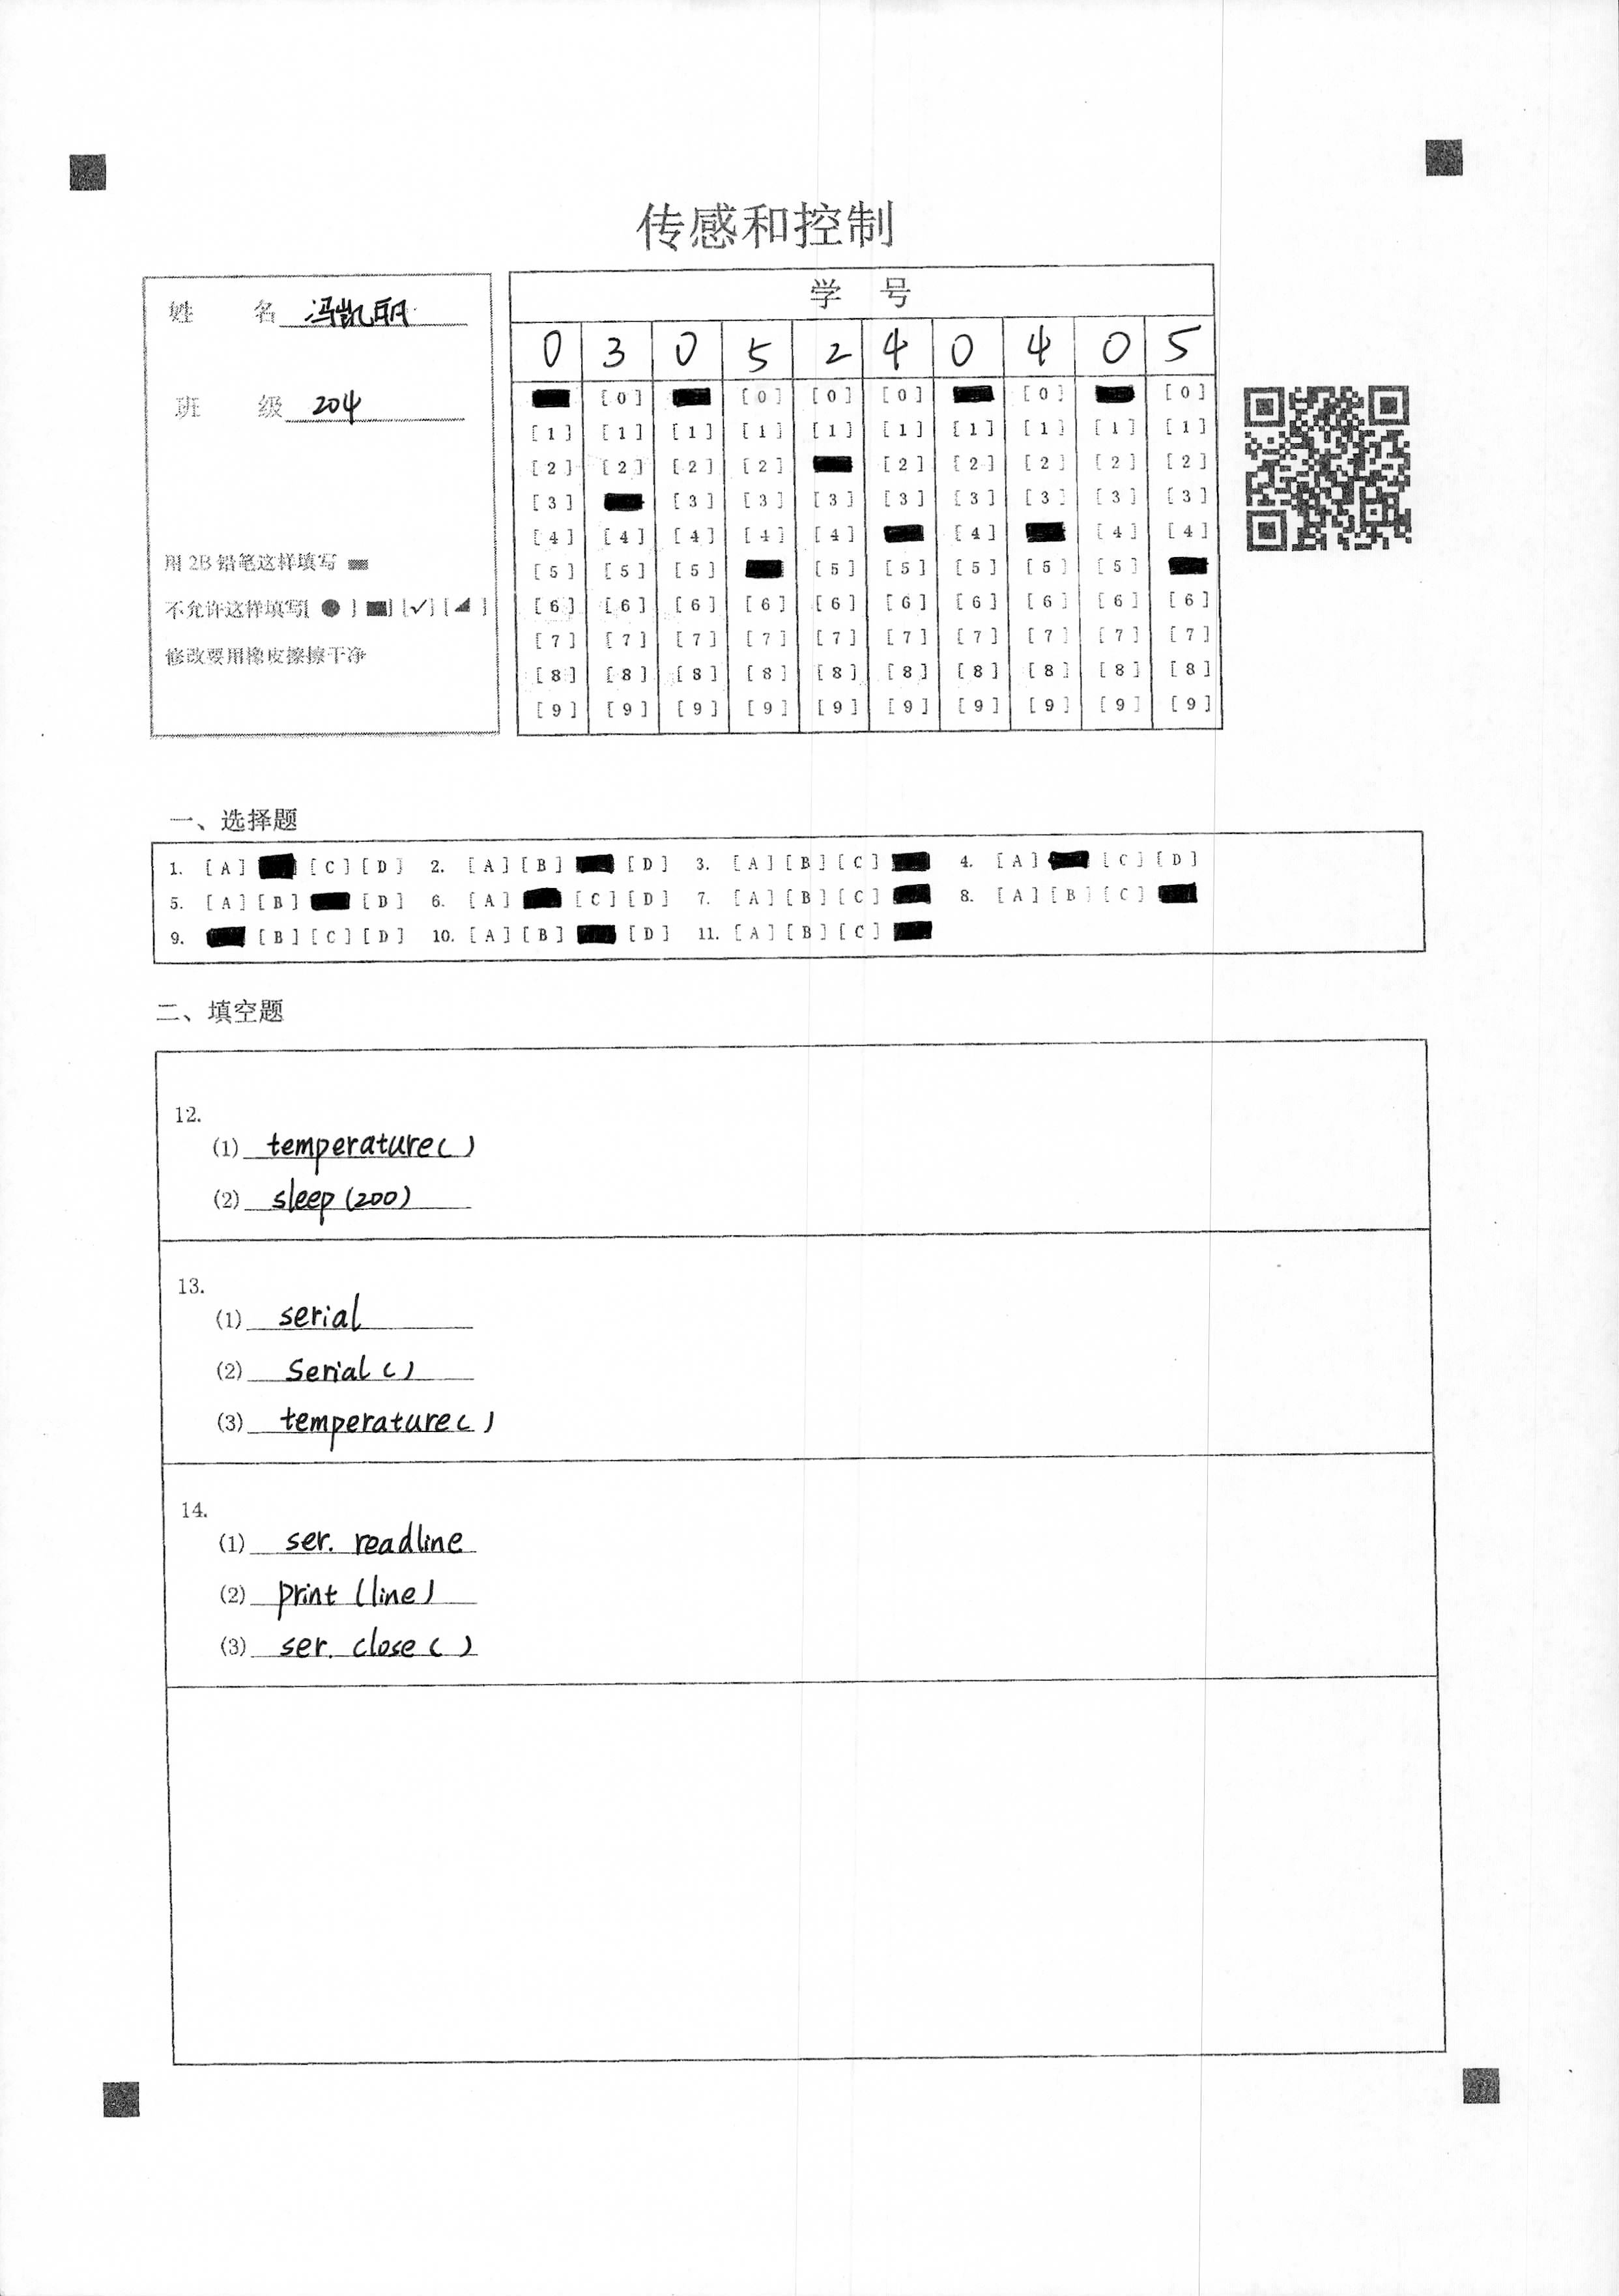 传感和控制
姓 名 冯凯明
班 级 204
用 2B 铅笔这样填写
不允许这样填写[ ● ] ■] [✓] [◢ ]
修改要用橡皮擦擦干净
学 号
0 3 0 5 2 4 0 4 0 5
[0] [0] [0] [0] [0] [0]
[1] [1] [1] [1] [1] [1] [1] [1] [1] [1]
[2] [2] [2] [2] [2] [2] [2] [2] [2]
[3] [3] [3] [3] [3] [3] [3] [3] [3]
[4] [4] [4] [4] [4] [4] [4] [4]
[5] [5] [5] [5] [5] [5] [5] [5]
[6] [6] [6] [6] [6] [6] [6] [6] [6] [6]
[7] [7] [7] [7] [7] [7] [7] [7] [7] [7]
[8] [8] [8] [8] [8] [8] [8] [8] [8] [8]
[9] [9] [9] [9] [9] [9] [9] [9] [9] [9]
一、选择题
1. [A] [C] [D] 2. [A] [B] [D] 3. [A] [B] [C] 4. [A] [C] [D]
5. [A] [B] [D] 6. [A] [C] [D] 7. [A] [B] [C] 8. [A] [B] [C]
9. [B] [C] [D] 10. [A] [B] [D] 11. [A] [B] [C]
二、填空题
12.
(1) temperature( )
(2) sleep(200)
13.
(1) serial
(2) Serial( )
(3) temperature( )
14.
(1) ser. readline
(2) print (line)
(3) ser. close( )